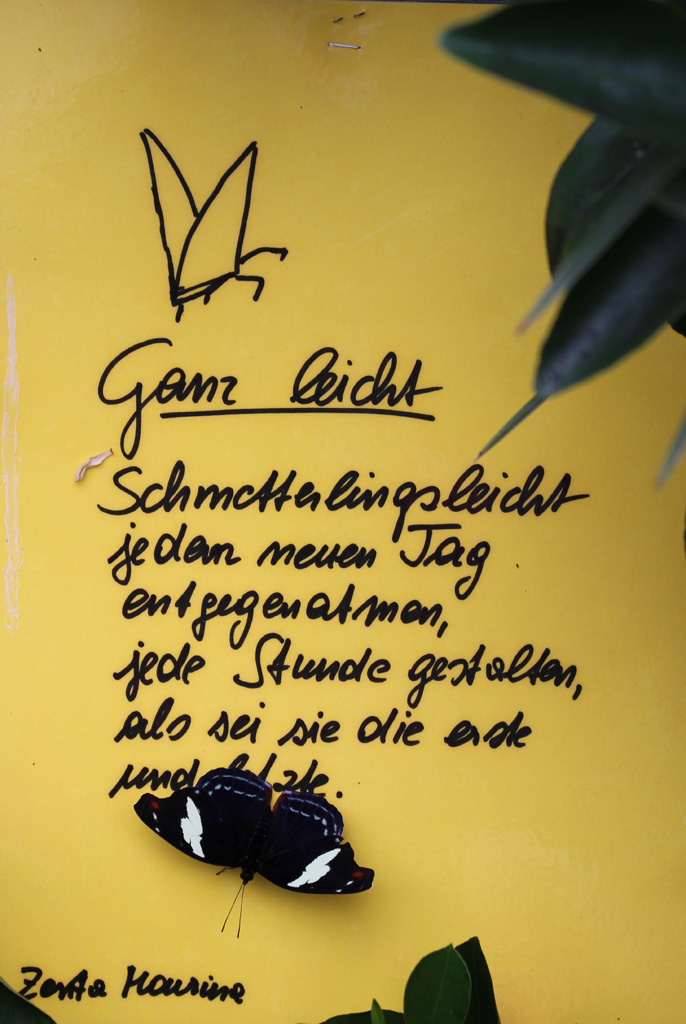 Ganz leicht
Schmetterlingsleicht
jedem neuen Tag
entgegenatmen,
jede Stunde gestalten,
als sei sie die erste
und letzte.
Zenta Maurina